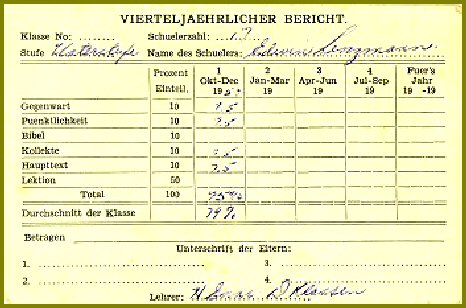 VIERTELJAEHRLICHER BERICHT.
Klasse No: ........ Schuelerzahl: 17
Stufe Unterstufe Name des Schuelers: Edwin
Prozent Einteil. 1 Okt-Dec 19 2 Jan-Mar 19 3 Apr-Jun 19 4 Jul-Sep 19 Fuer's Jahr 19 -19
Gegenwart 10
Puenktlichkeit 10
Bibel 10
Kollekte 10
Haupttext 10
Lektion 50
Total 100
Durchschnitt der Klasse 79%
Betragen
Unterschrift der Eltern:
1. 3.
2. 4.
Lehrer: D Klassen